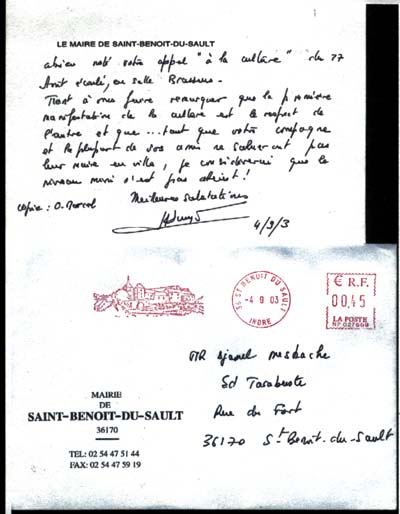 LE MAIRE DE SAINT-BENOIT-DU-SAULT
a bien noté votre appel "à la culture" du 27
Août écoulé, en salle Brassens.
Tient à vous faire remarquer que la première
manifestation de la culture est le respect de
l'autre et que ... tant que votre compagne
et la plupart de vos amis ne salueront pas
leur maire en ville, je considérerai que le
niveau mini n'est pas atteint !
Meilleures salutations
Copie : O.
4/9/3
36 ST BENOIT DU SAULT
-4 9 03
INDRE
€ R.F.
00,45
LA POSTE
MAIRIE
DE
SAINT-BENOIT-DU-SAULT
36170
TEL: 02 54 47 51 44
FAX: 02 54 47 59 19
MR Djamel Mesbache
Rue du Fort
36170 St Benoit-du-Sault